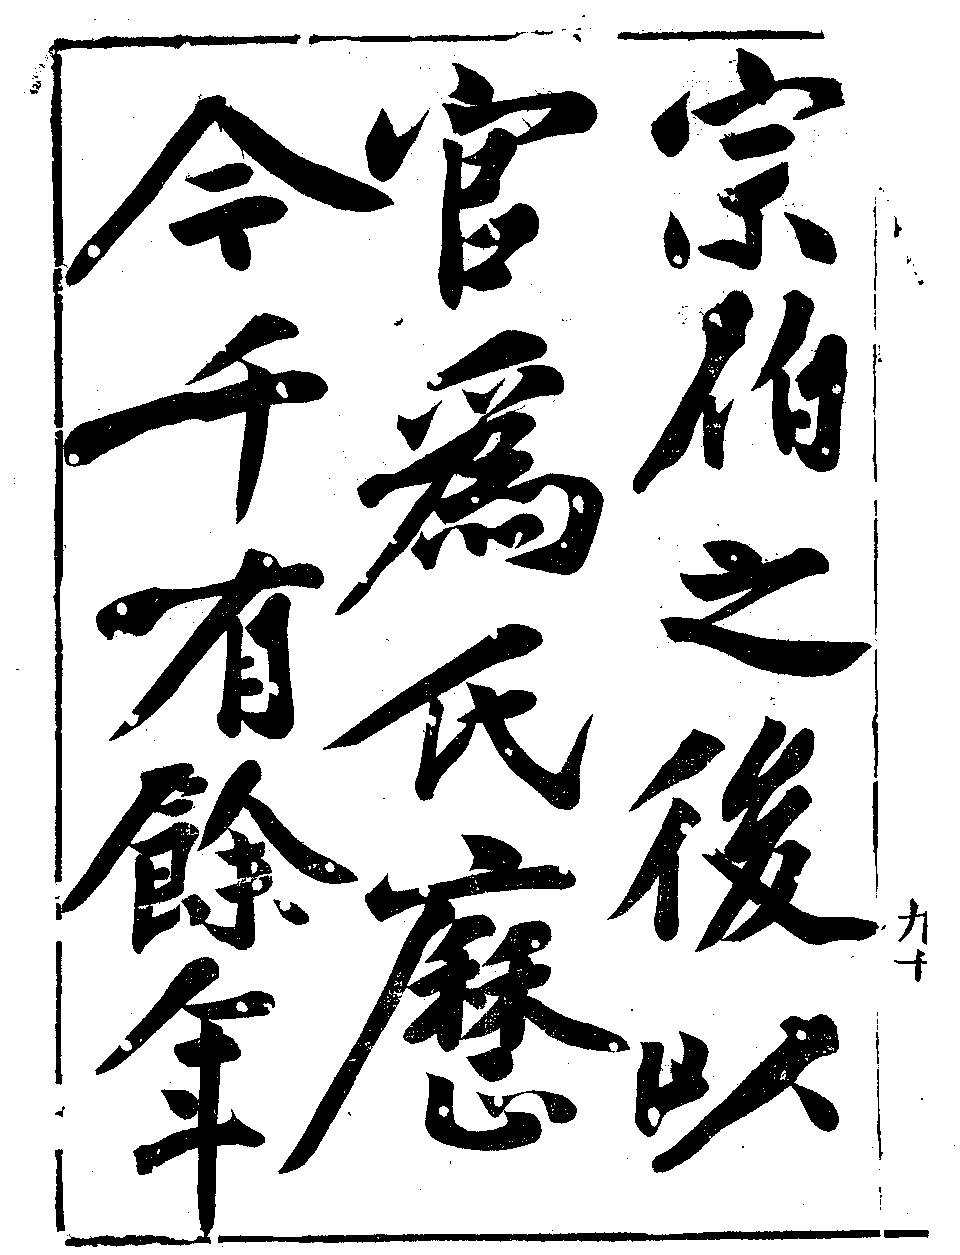 九十
宗伯之後以
官爲氏歷
今千有餘年